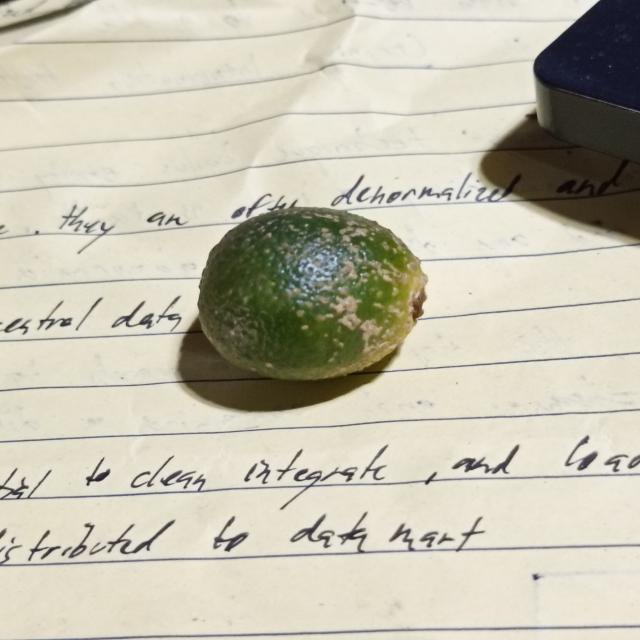 . they an often denormalized and
central data
to clean integrate , and load
distributed to data mart